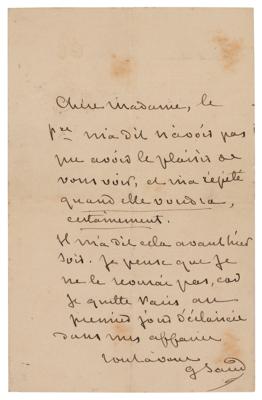 Chère madame, le
pce m'a dit n'avoir pas
pu avoir le plaisir de
vous voir, et m'a répété
quand elle voudra,
certainement.
Il m'a dit cela avant hier
soir. Je pense que je
ne le reverrai pas, car
je quitte Paris au
premier jour d'éclaircie
dans mes affaires
tout à vous
G Sand